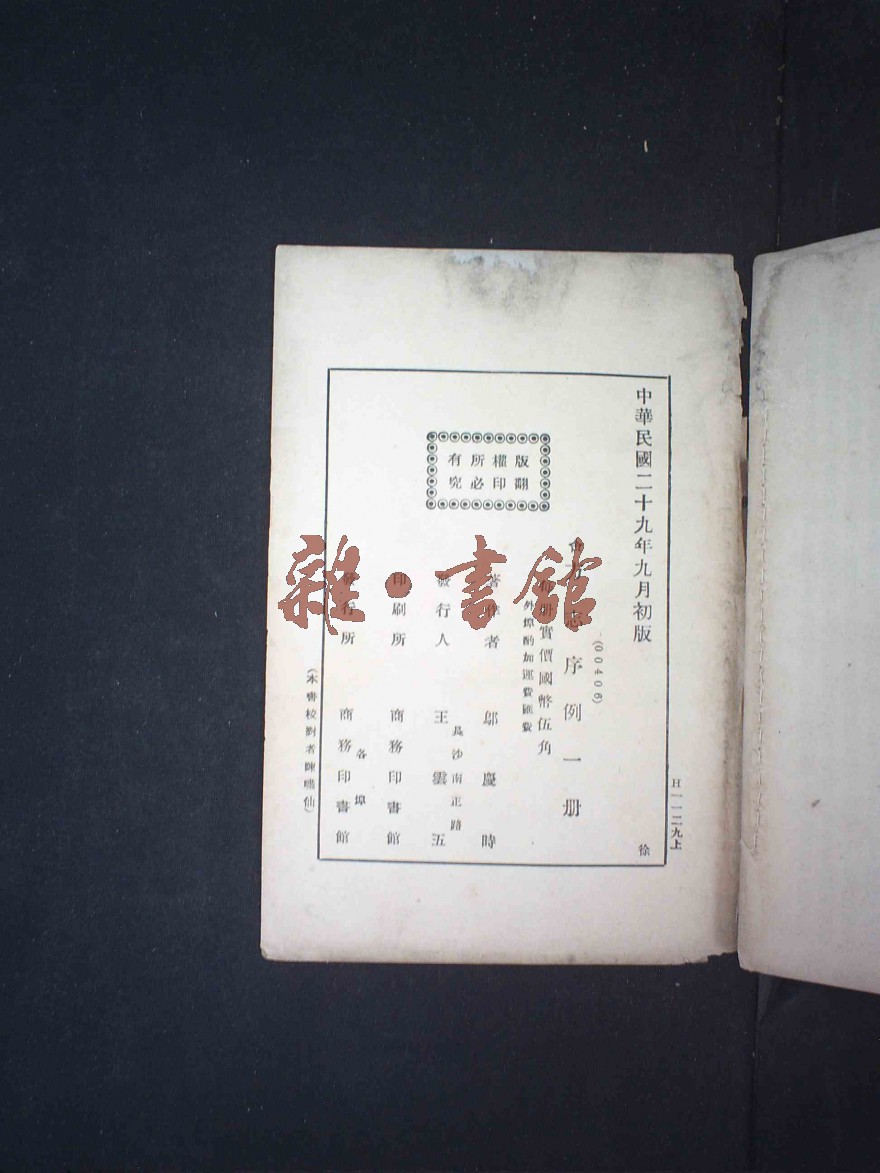 中華民國二十九年九月初版
(00406)
志序例一册
册實價國幣伍角
外埠酌加運費匯費
版權所有
翻印必究
著作者
鄔慶時
發行人
王雲五
長沙南正路
印刷所
商務印書館
發行所
商務印書館
各埠
(本書校對者陳嘯仙)
H一一二九上
徐
雜·書館